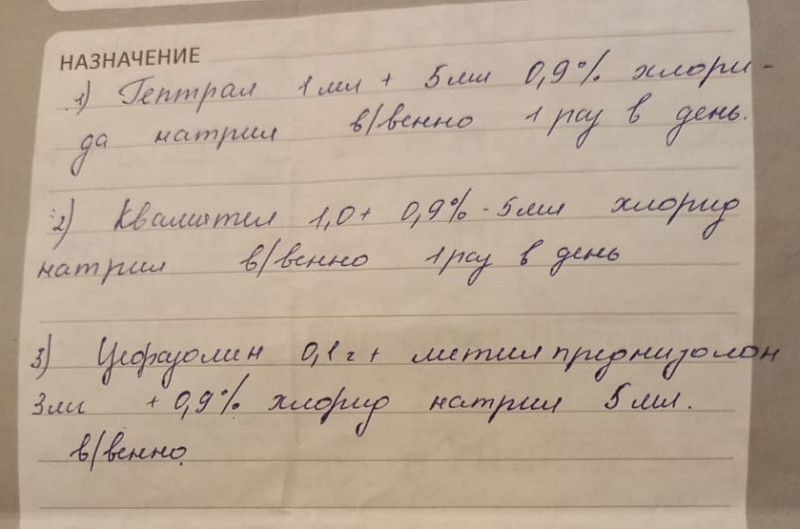 НАЗНАЧЕНИЕ
1) Гептрал 1мл + 5мл 0,9% хлори-
да натрия в/венно 1 раз в день.
2) Квамател 1,0+ 0,9% - 5мл хлорид
натрия в/венно 1 раз в день
3) Цефазолин 0,1г + метилпреднизолон
3мг + 0,9% хлорид натрия 5мл.
в/венно